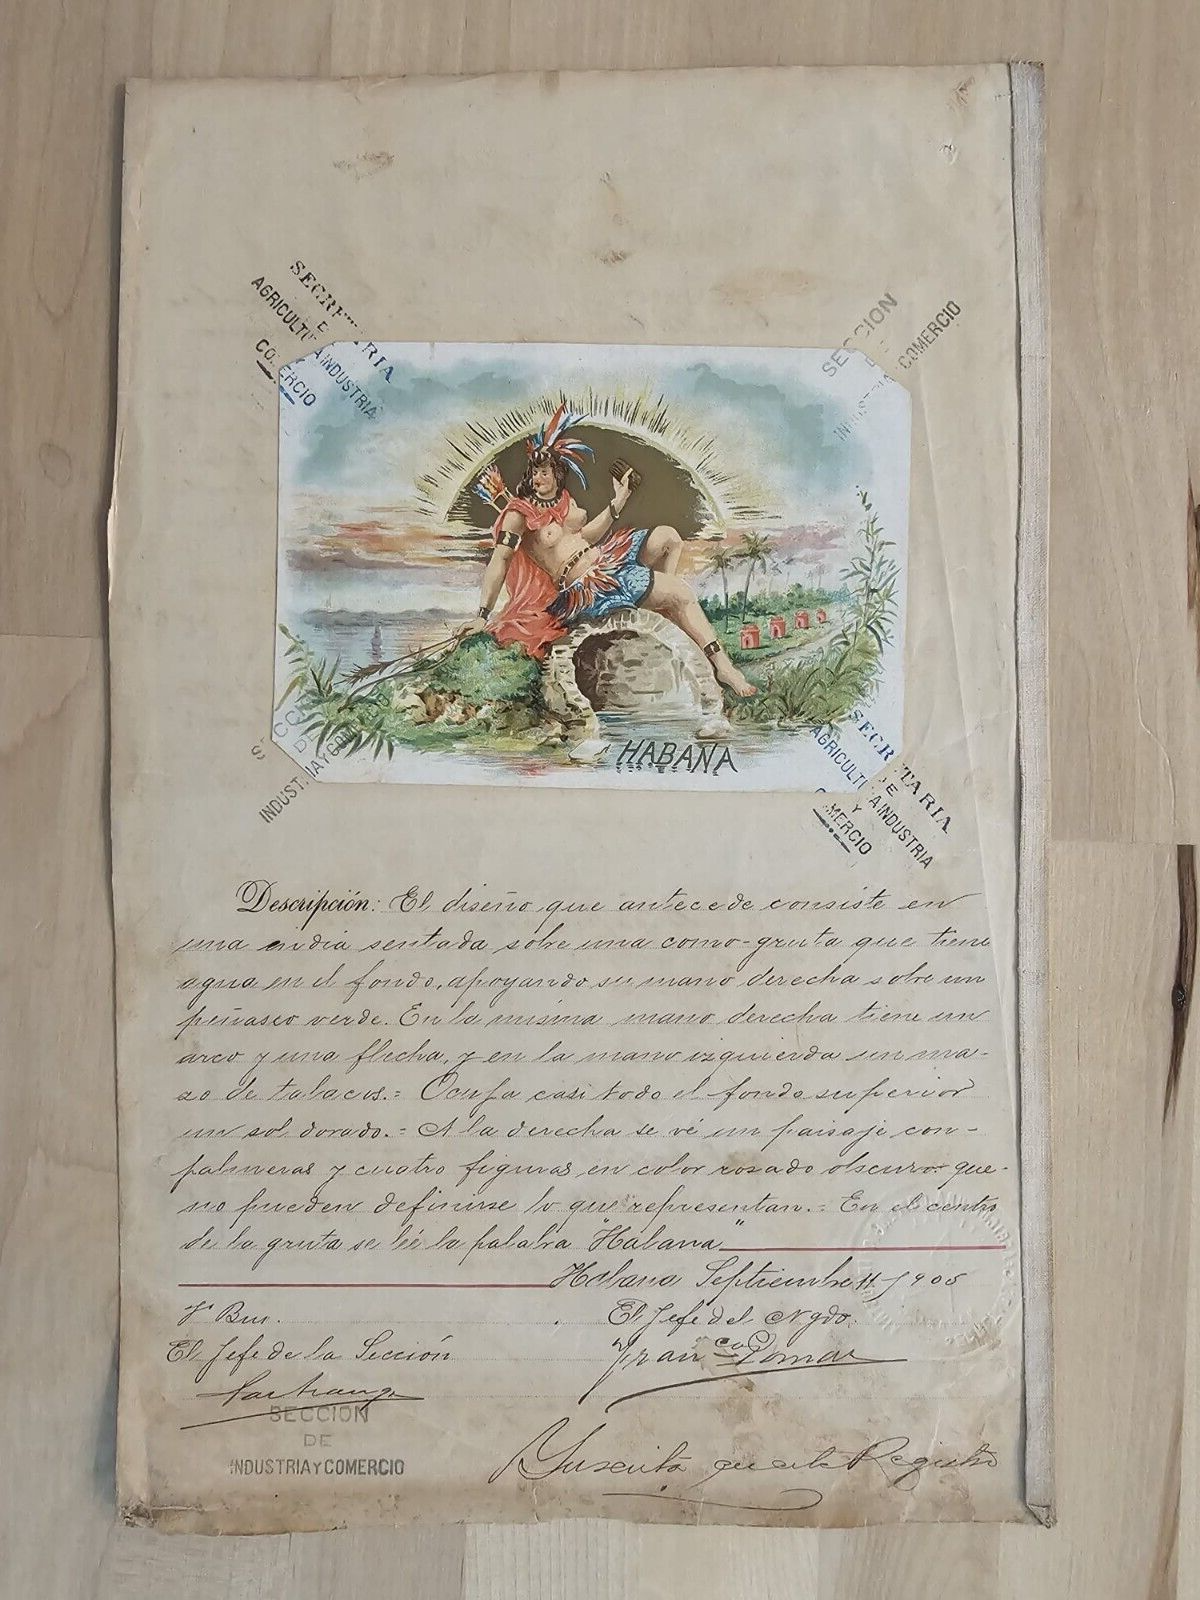 SECRETARIA
DE
AGRICULTURA INDUSTRIA
Y
COMERCIO
SECCION
DE
INDUSTRIA Y COMERCIO
HABANA
SECCION
DE
INDUSTRIA Y COMERCIO
SECRETARIA
DE
AGRICULTURA INDUSTRIA
Y
COMERCIO
Descripción: El diseño que antecede consiste en
una india sentada sobre una como-gruta que tiene
agua en el fondo, apoyando su mano derecha sobre un
peñasco verde. En la misma mano derecha tiene un
arco y una flecha, y en la mano izquierda un ma-
zo de tabacos.= Ocupa casi todo el fondo superior
un sol dorado.= A la derecha se vé un paisaje con-
palmeras y cuatro figuras en color rosado obscuro que-
no pueden definirse lo que representan.= En el centro
de la gruta se lée la palabra "Habana"
Habana Septiembre 11/905
Vº Bno. El Jefe del Ngdo.
El Jefe de la Sección Franco
SECCION
DE
INDUSTRIA Y COMERCIO
Registro